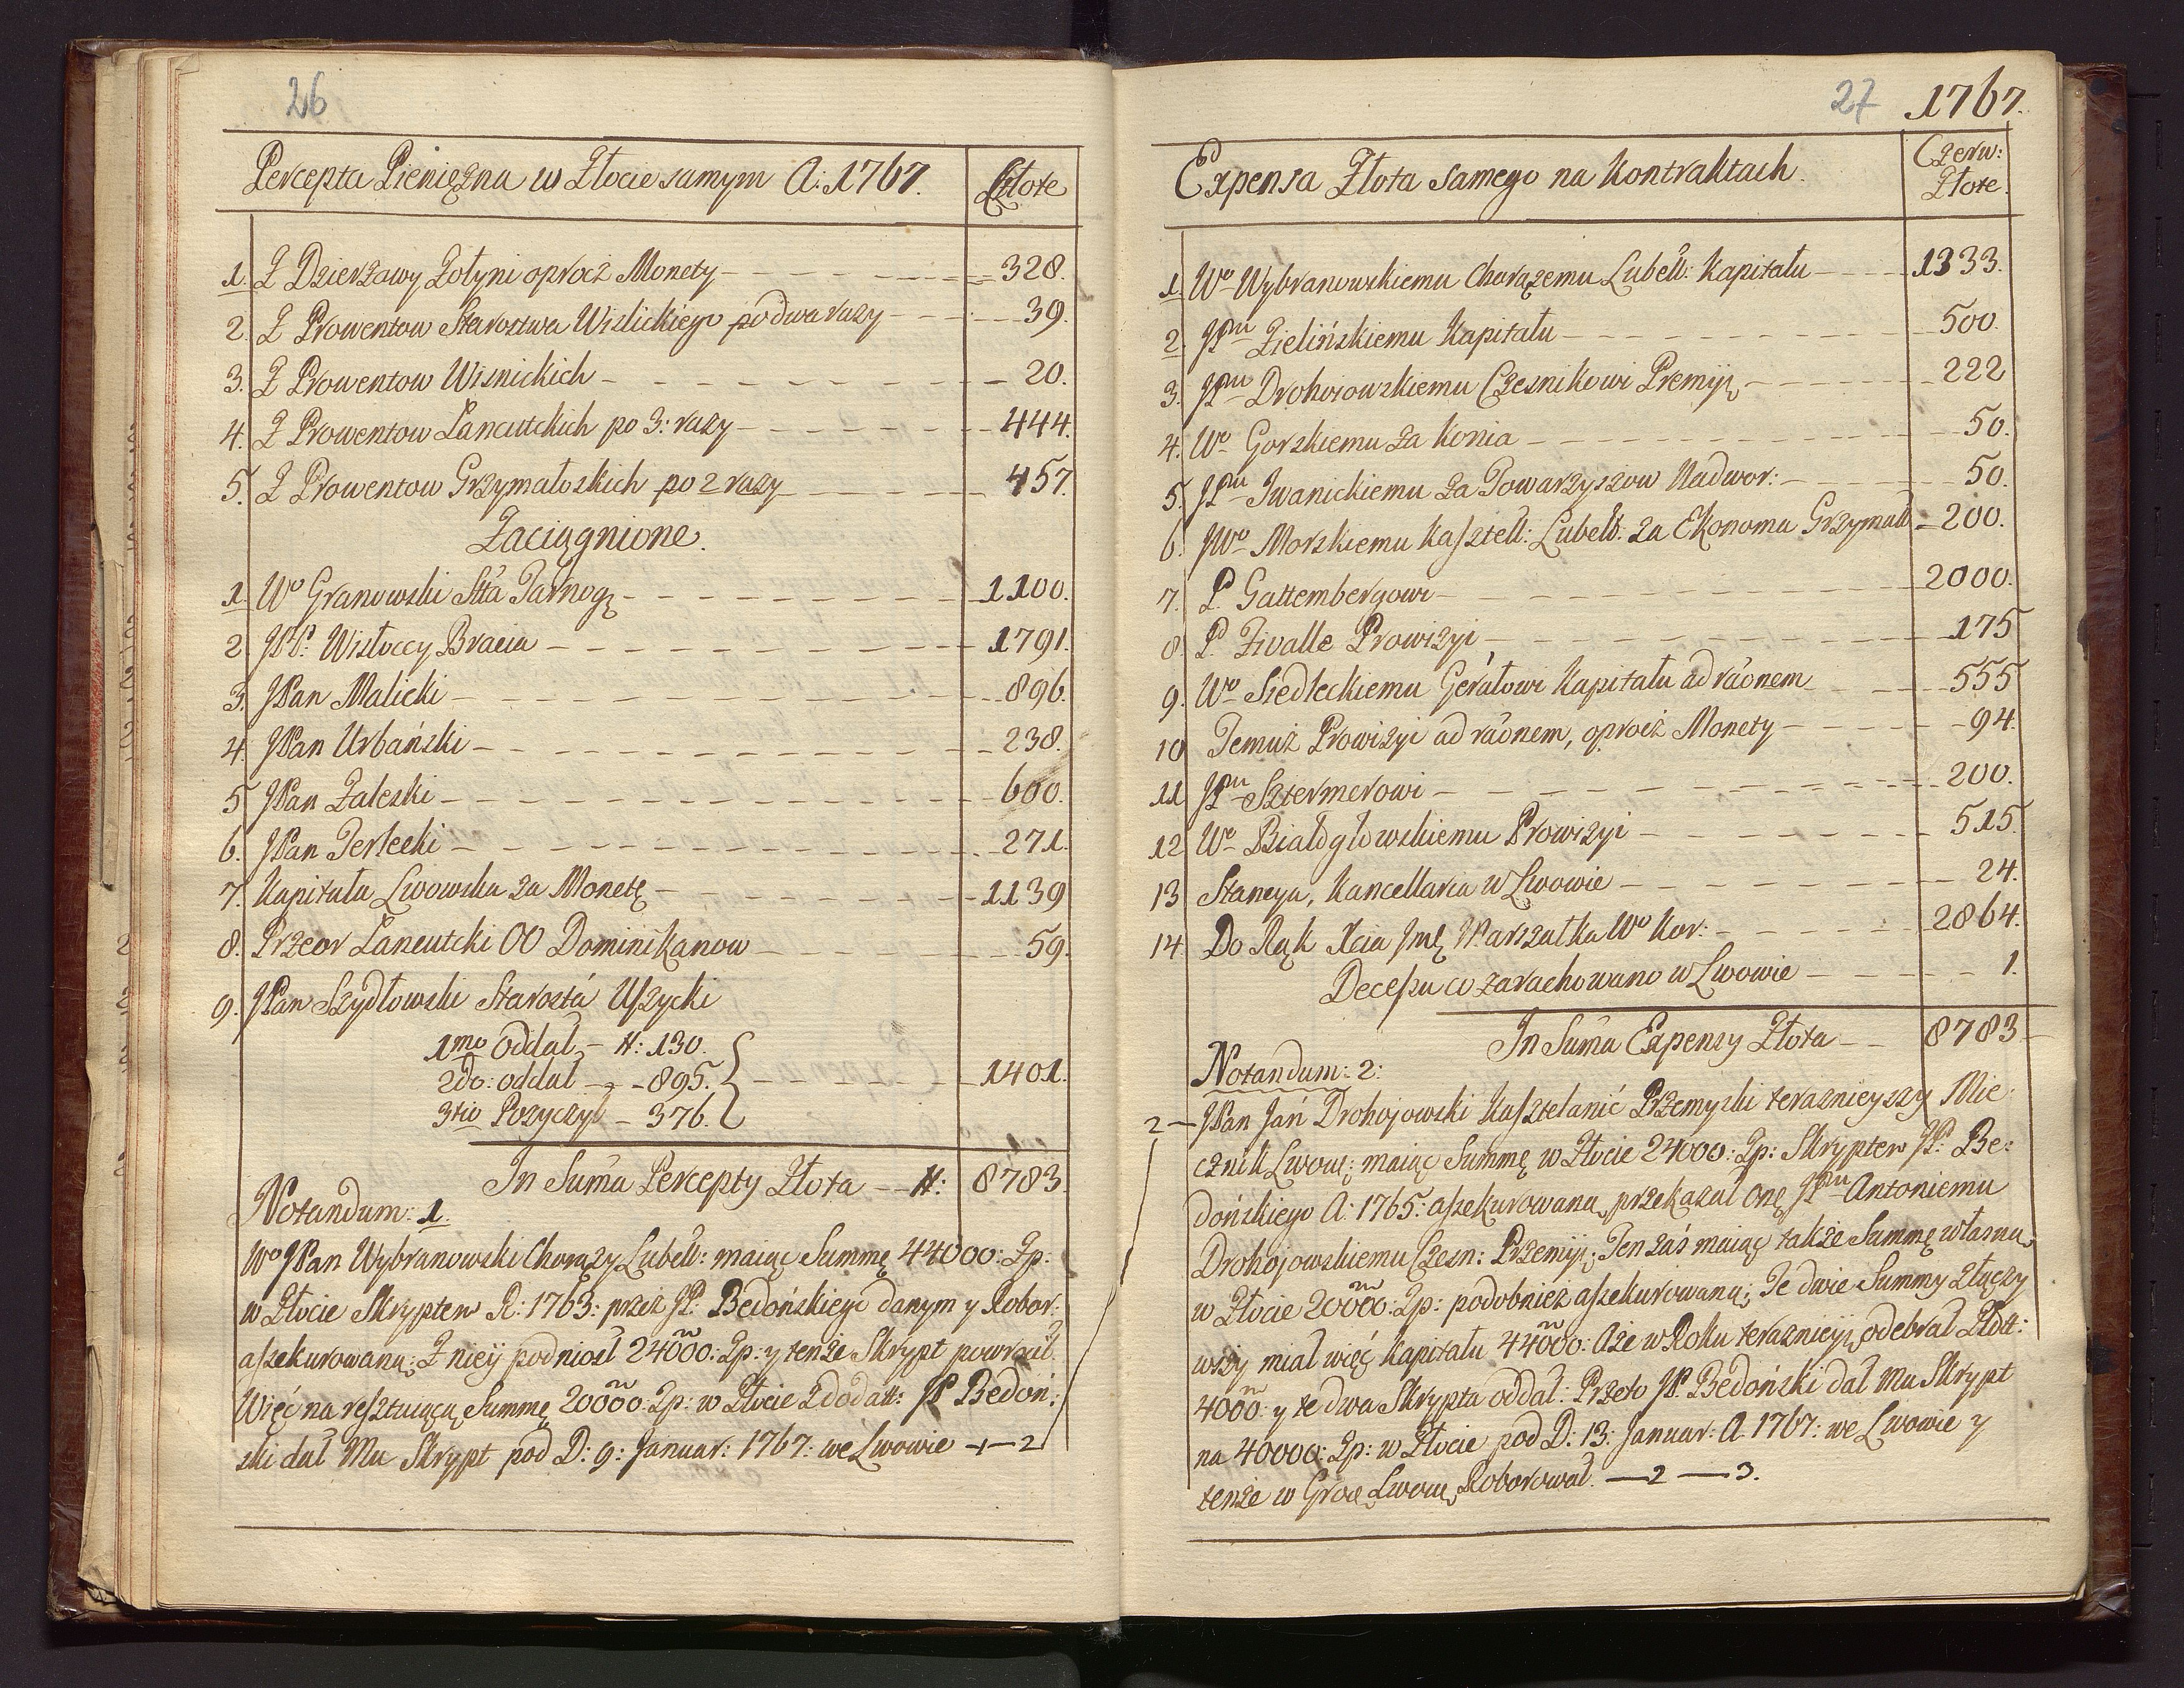 26
Percepta Pieniężna w Złocie samym A: 1767. Człote
1. Z Dzierżawy Żołyni oprocz Monety 328.
2. Z Prowentow Starostwa Wislickiego po dwa razy 39.
3. Z Prowentow Wisnickich 20.
4. Z Prowentow Lancutckich po 3: razy 444.
5. Z Prowentow Grzymałoskich po 2 razy 457.
Zaciągnione.
1. Wo Granowski Stta Tarnogę 1100.
2. JPP: Wisłoccy Bracia 1791.
3. JPan Malicki 896.
4. JPan Urbański 238.
5 JPan Zaleski 600.
6. JPan Terlecki 271.
7. Kapitału Lwowska za Monetę 1139
8. Przeor Lancutcki OO Dominikanow 59.
9. JPan Szydłowski Starosta Uszycki
1mo Oddał #: 130.
2do: oddał 895.
3tio Pozyczył 376.
1401.
In Suma Percepty Złota #: 8783.
Notandum: 1.
Wo JPan Wybranowski Chorąży Lubell: maiąc Summę 44000: Zp:
w Złocie Skryptem R: 1763: przez JP: Bedońskiego danym y Robor:
assekurowaną; Z nieÿ podniosł 24000: Zp: y tenże Skrypt powrocił.
Więc na resztuiącą Summę 20000 Zp: w Złocie Z dodatt: JP Bedoń:
ski dał Mu Skrypt pod D: 9: Januar: 1767: we Lwowie —1—2
27 1767.
Expensa Złota samego na Kontraktach. Czerw: Złote.
1. Wo Wybranowskiemu Chorążemu Lubell: Kapitału 1333.
2. JPnu Zielińskiemu Kapitału 500.
3. JPnu Drohoiowskiemu Czesnikowi Przemyÿ 222
4. Wo Gorskiemu za Konia 50.
5. JPnu Iwanickiemu za Towarzyszow Nadwor: 50.
6. JWo Morskiemu Kasztell: Lubell: za Ekonoma Grzymałł 200.
7. P. Gattembergowi 2000.
8 P. Zivalle Prowizyi 175
9. Wo Siedleckiemu Gerałowi Kapitału ad raonem 555
10 Temuż Prowizyi ad raonem, oprocz Monety 94.
11 JPnu Sztermerowi 200.
12 Wo Białogłowskiemu Prowizyi 515.
13 Stancya, Kancellaria w Lwowie 24.
14. Do Rąk Xcia Jmę Marszałka Wo Kor: 2864.
Decessu co zarachowano w Lwowie 1.
In Suma Expensy Złota 8783
Notandum: 2:
2— JPan Jan Drohojowski Kasztelanic Przemyski teraznieyszy Mie:
cznik Lwows: maiąc Summę w Złocie 24000: Zp: Skryptem JP: Be:
dońskiego A: 1765: assekurowaną, przekazał Onę JPnu Antoniemu
Drohojowskiemu Czesn: Przemÿ; Ten zaś maiąc także Summę własną
w Złocie 20000: Zp: podobnież assekurowaną; Te dwie Summy złączy
wszy miał więc Kapitału 44000: Aże w Roku teraznieÿs, odebrał Złott:
4000: y te dwa Skrypta oddał: Przeto JP. Bedoński dał Mu Skrypt
na 40000: Zp: w Złocie pod D: 13: Januar: A. 1767: we Lwowie y
tenże w Grodz Lwows, Roborował. —2—3.